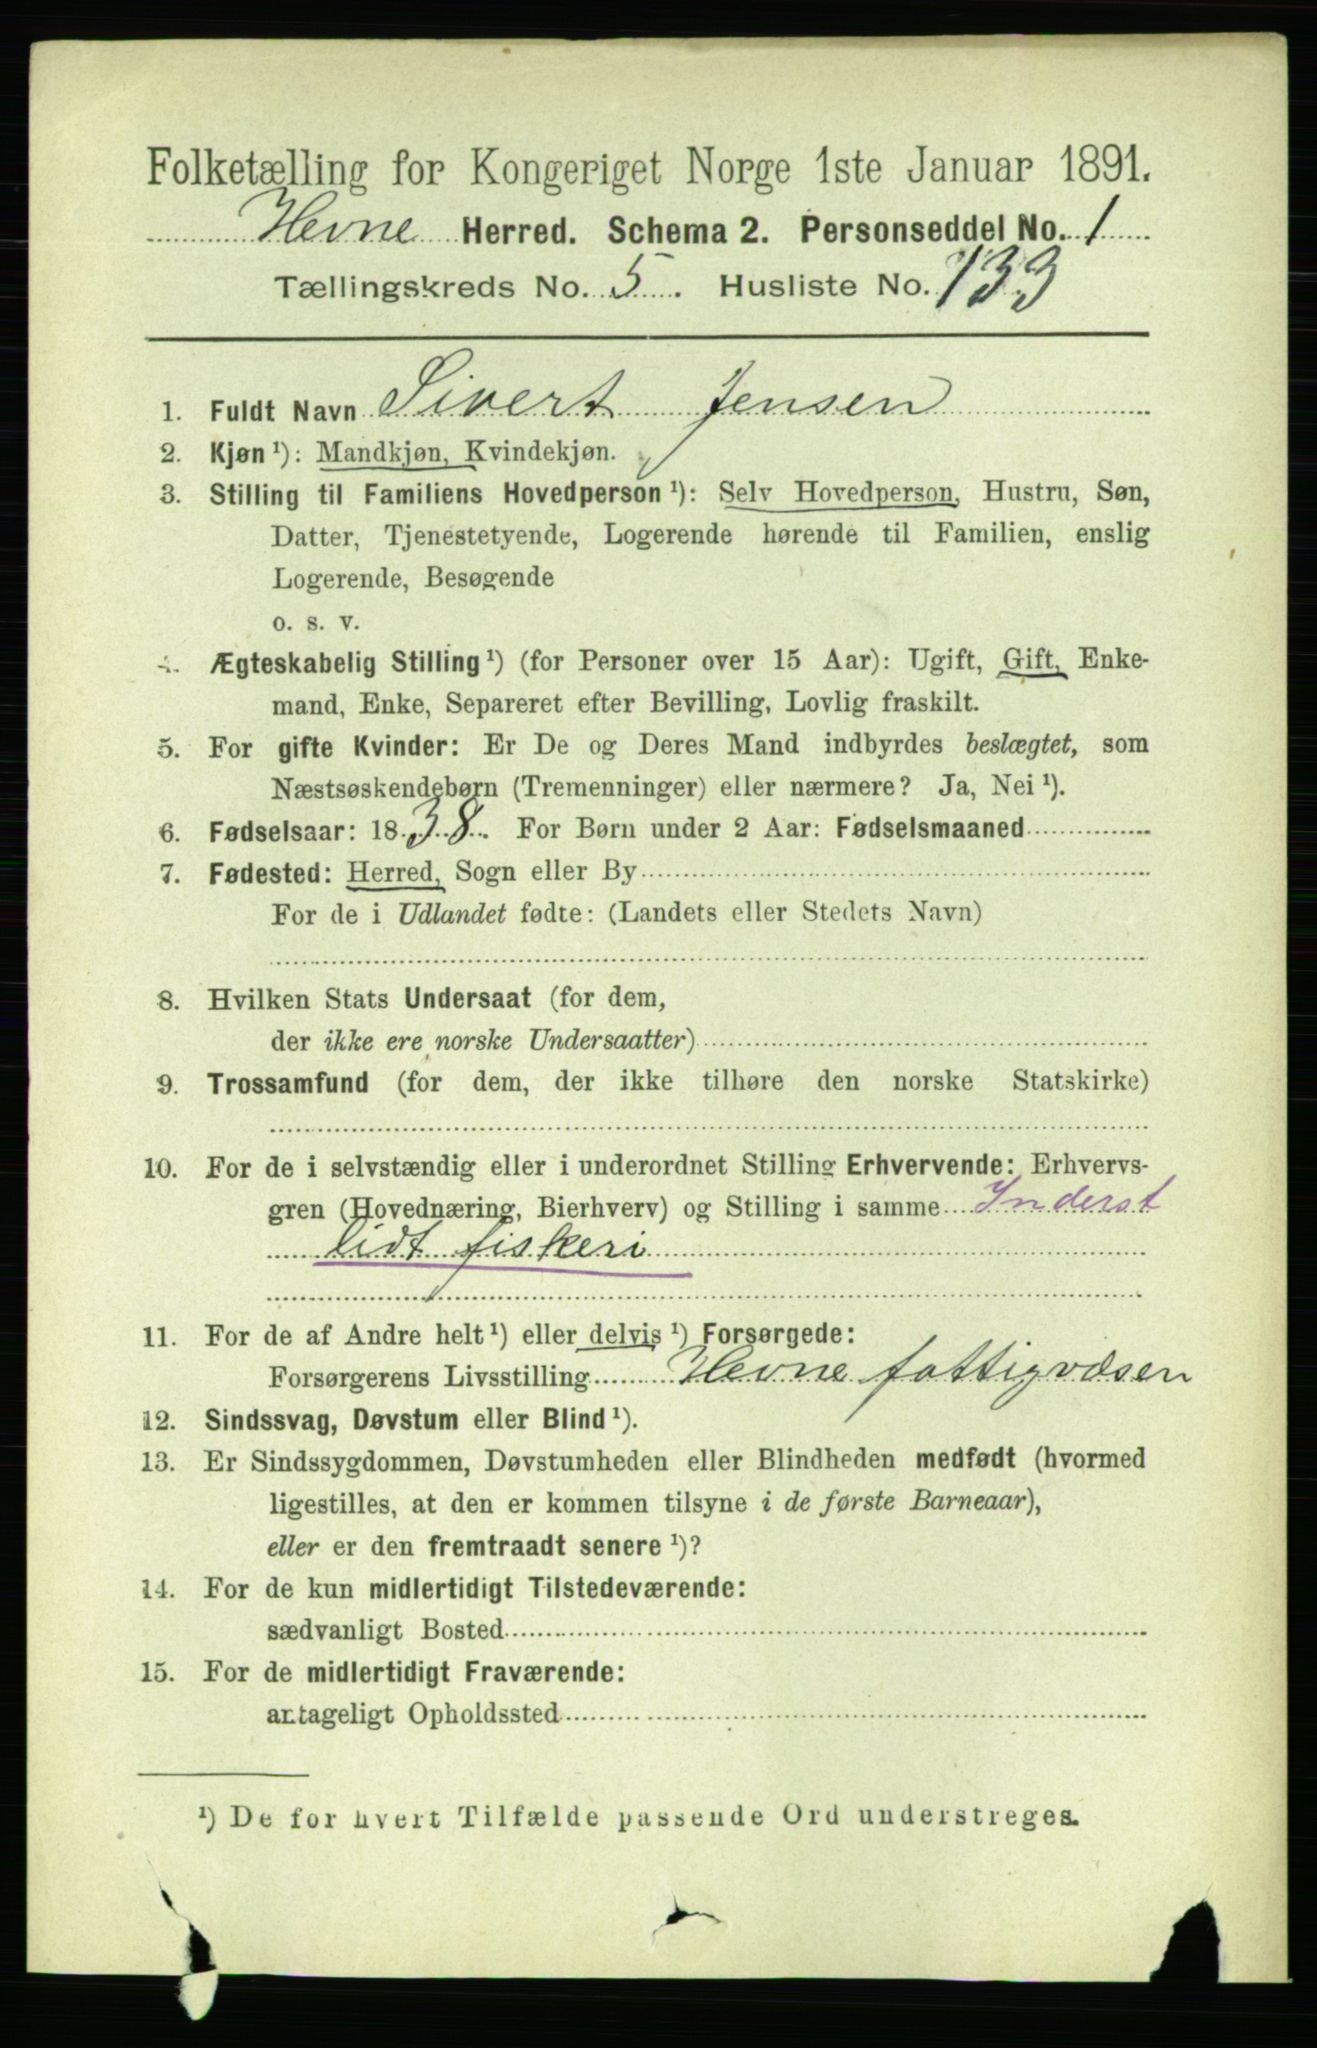 Folketælling for Kongeriget Norge 1ste Januar 1891.
Hevne Herred. Schema 2. Personseddel No. 1
Tællingskreds No. 5. Husliste No. 133
1. Fuldt Navn Sivert Jensen
2. Kjøn ¹): Mandkjøn, Kvindekjøn.
3. Stilling til Familiens Hovedperson ¹): Selv Hovedperson, Hustru, Søn,
Datter, Tjenestetyende, Logerende hørende til Familien, enslig
Logerende, Besøgende
o. s. v.
4. Ægteskabelig Stilling ¹) (for Personer over 15 Aar): Ugift, Gift, Enke-
mand, Enke, Separeret efter Bevilling, Lovlig fraskilt.
5. For gifte Kvinder: Er De og Deres Mand indbyrdes beslægtet, som
Næstsøskendebørn (Tremenninger) eller nærmere? Ja, Nei ¹).
6. Fødselsaar: 1838. For Børn under 2 Aar: Fødselsmaaned
7. Fødested: Herred, Sogn eller By
For de i Udlandet fødte: (Landets eller Stedets Navn)
8. Hvilken Stats Undersaat (for dem,
der ikke ere norske Undersaatter)
9. Trossamfund (for dem, der ikke tilhøre den norske Statskirke)
10. For de i selvstændig eller i underordnet Stilling Erhvervende: Erhvervs-
gren (Hovednæring, Bierhverv) og Stilling i samme Inderst
lidt fiskeri
11. For de af Andre helt ¹) eller delvis ¹) Forsørgede:
Forsørgerens Livsstilling Hevne fattigvæsen
12. Sindssvag, Døvstum eller Blind ¹).
13. Er Sindssygdommen, Døvstumheden eller Blindheden medfødt (hvormed
ligestilles, at den er kommen tilsyne i de første Barneaar),
eller er den fremtraadt senere ¹)?
14. For de kun midlertidigt Tilstedeværende:
sædvanligt Bosted
15. For de midlertidigt Fraværende:
antageligt Opholdssted
¹) De for hvert Tilfælde passende Ord understreges.